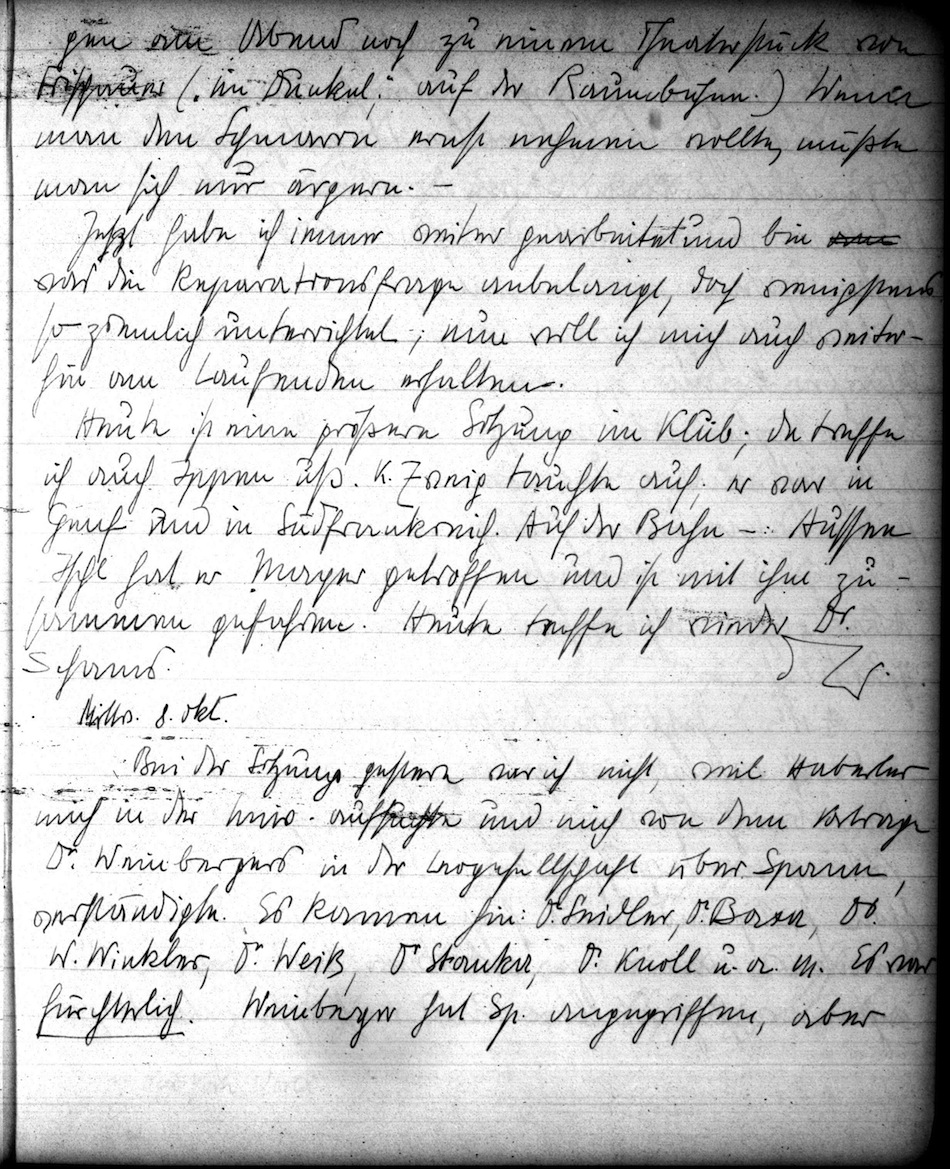 gen am Abend noch zu einem Theaterstück von
Frischauer („im Dunkel“; auf der Raumbühne.) Wenn
man den Schmarrn ernst nehmen wollte, müßte
man sich nur ärgern. –
Jetzt habe ich immer weiter gearbeitet und bin
was die Reparationsfrage anbelangt, doch wenigstens
so ziemlich unterrichtet; nun will ich mich auch weiter-
hin am Laufenden erhalten.
Heute ist eine größere Sitzung im Klub; da treffe
ich auch Ippen usf. K. Zweig tauchte auf; er war in
Genf und in Südfrankreich. Auf der Bahn –: Aussee
Ischl hat er Mayer getroffen und ist mit ihm zu-
sammen gefahren. Heute treffe ich wieder Dr.
Schams.
Mittw. 8. Okt.
Bei der Sitzung gestern war ich nicht, weil Haberler
mich in der Univ. aufsuchte und mich von dem Vortrage
Dr. Weinbergers in der Leogesellschaft über Spann,
verständigte. Es kamen hin: Dr. Seidler, Dr. Baxa, Dr.
W. Winkler, Dr. Weiß, Dr. Stanka, Dr. Knoll u. a. m. Es war
fürchterlich. Weinberger hat Sp. angegriffen, aber